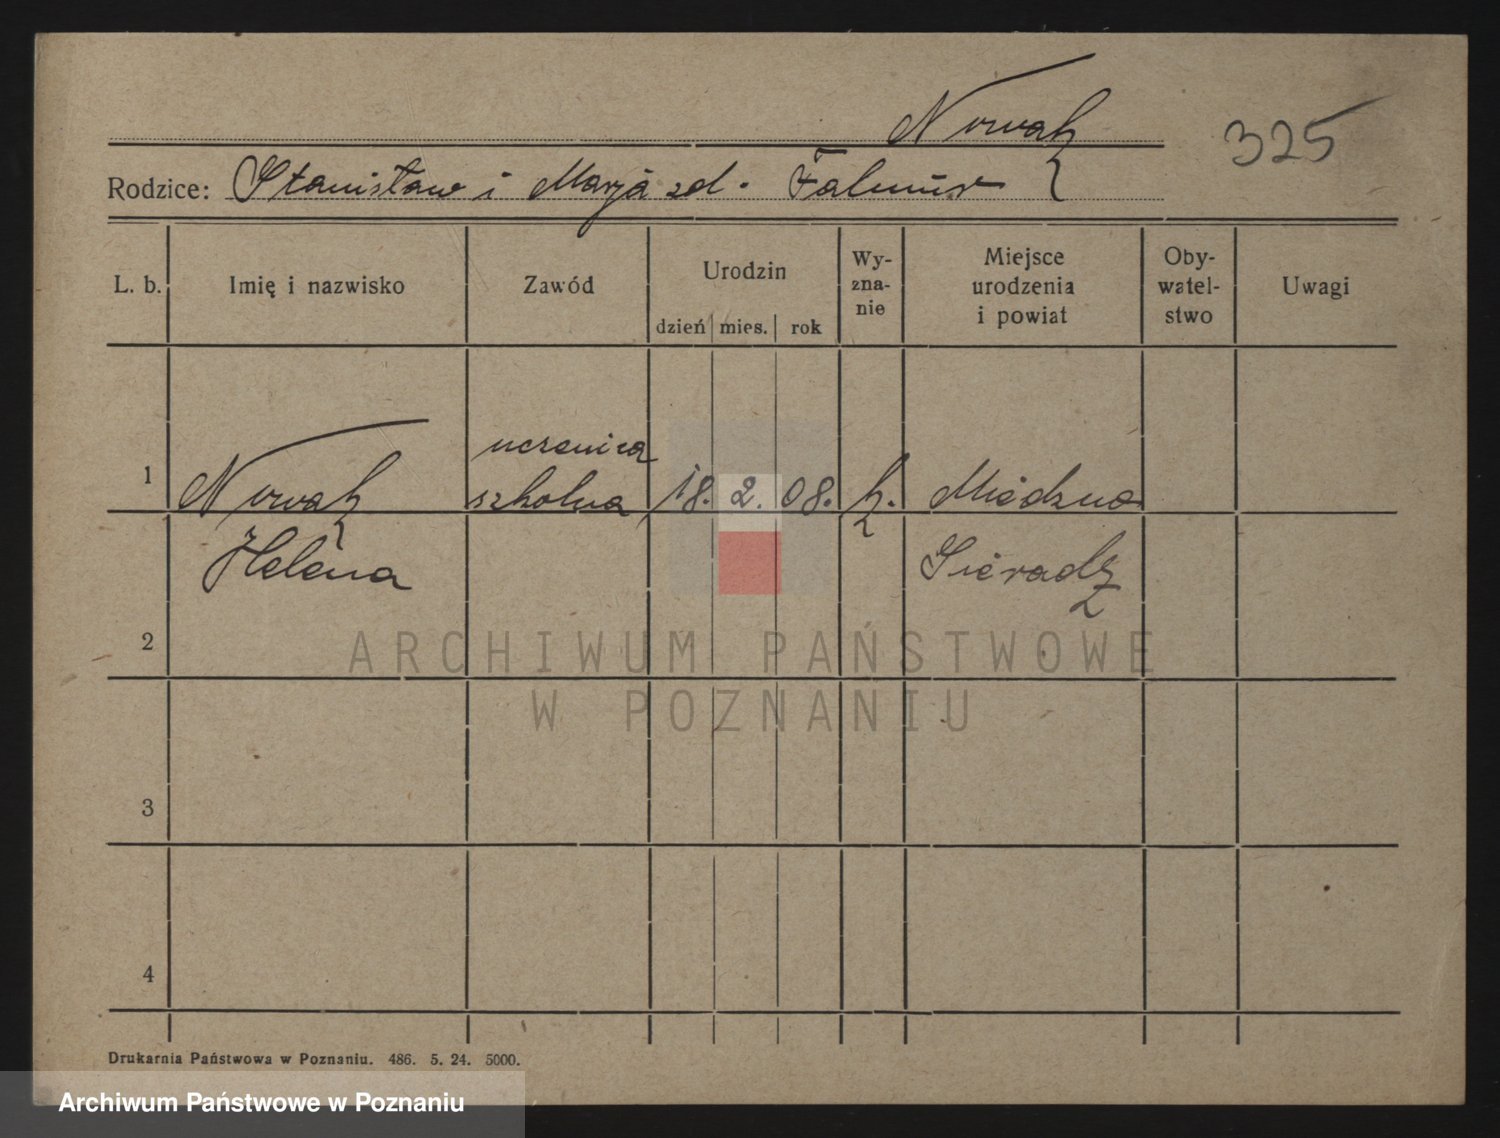 Nowak
325
Rodzice: Stanisław i Marja zd.
L. b. Imię i nazwisko Zawód Urodzin dzień mies. rok Wy-zna-nie Miejsce urodzenia i powiat Oby-watel-stwo Uwagi
uczenica
1 Nowak szkolna 18. 2. 08. k. Miedzno
Helena Sieradz
2
ARCHIWUM PAŃSTWOWE
W POZNANIU
3
4
Drukarnia Państwowa w Poznaniu. 486. 5. 24. 5000.
Archiwum Państwowe w Poznaniu